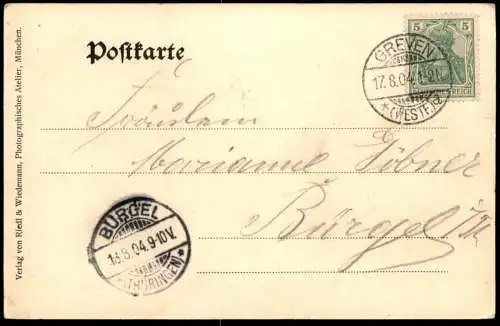 Postkarte
5 5
GREVEN
17. 8. 04
* (WESTF.) a
Fräulein
Marianne Löbner
Bürgel
i/Th
BÜRGEL
18.8.04.9-10V.
*(THÜRINGEN)*
Verlag von Riedl & Wiedemann, Photographisches Atelier, München.